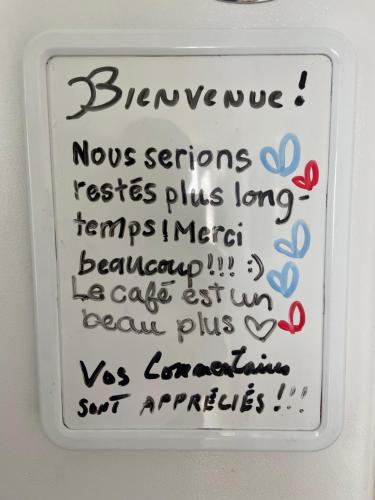 Bienvenue!
Nous serions
restés plus long-
temps! Merci
beaucoup!!! :)
Le café est un
beau plus
Vos Commentaires
sont appréciés!!!